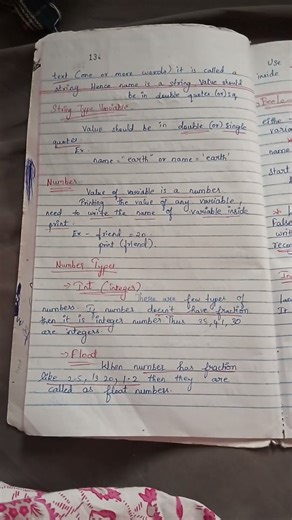 134
text (one or more words) it is called a
string. Hence name is a string. Value should
be in double quotes (or) in
String Type Variable
Value should be in double (or) single
quotes
Ex
name = "earth" or name = 'earth'
Number
Value of variable is a number.
Printing the value of any variable,
need to write the name of variable inside
print.
Ex - friend = 20
print (friend).
Number Types
→ Int (integer)
here are few types of
numbers. If number doesn't have fraction
then it is integer number. Thus 25, 4, 1, 30
are integers.
→ Float
When number has fraction
like 2.5, 1.20, 1.2 then they are
called as float numbers.
Use
inside
else
varia
name
start
False
writ